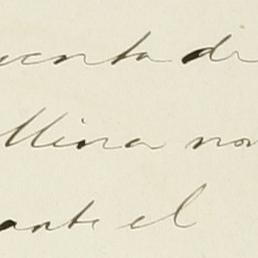 uenta de
Mina no
ante el